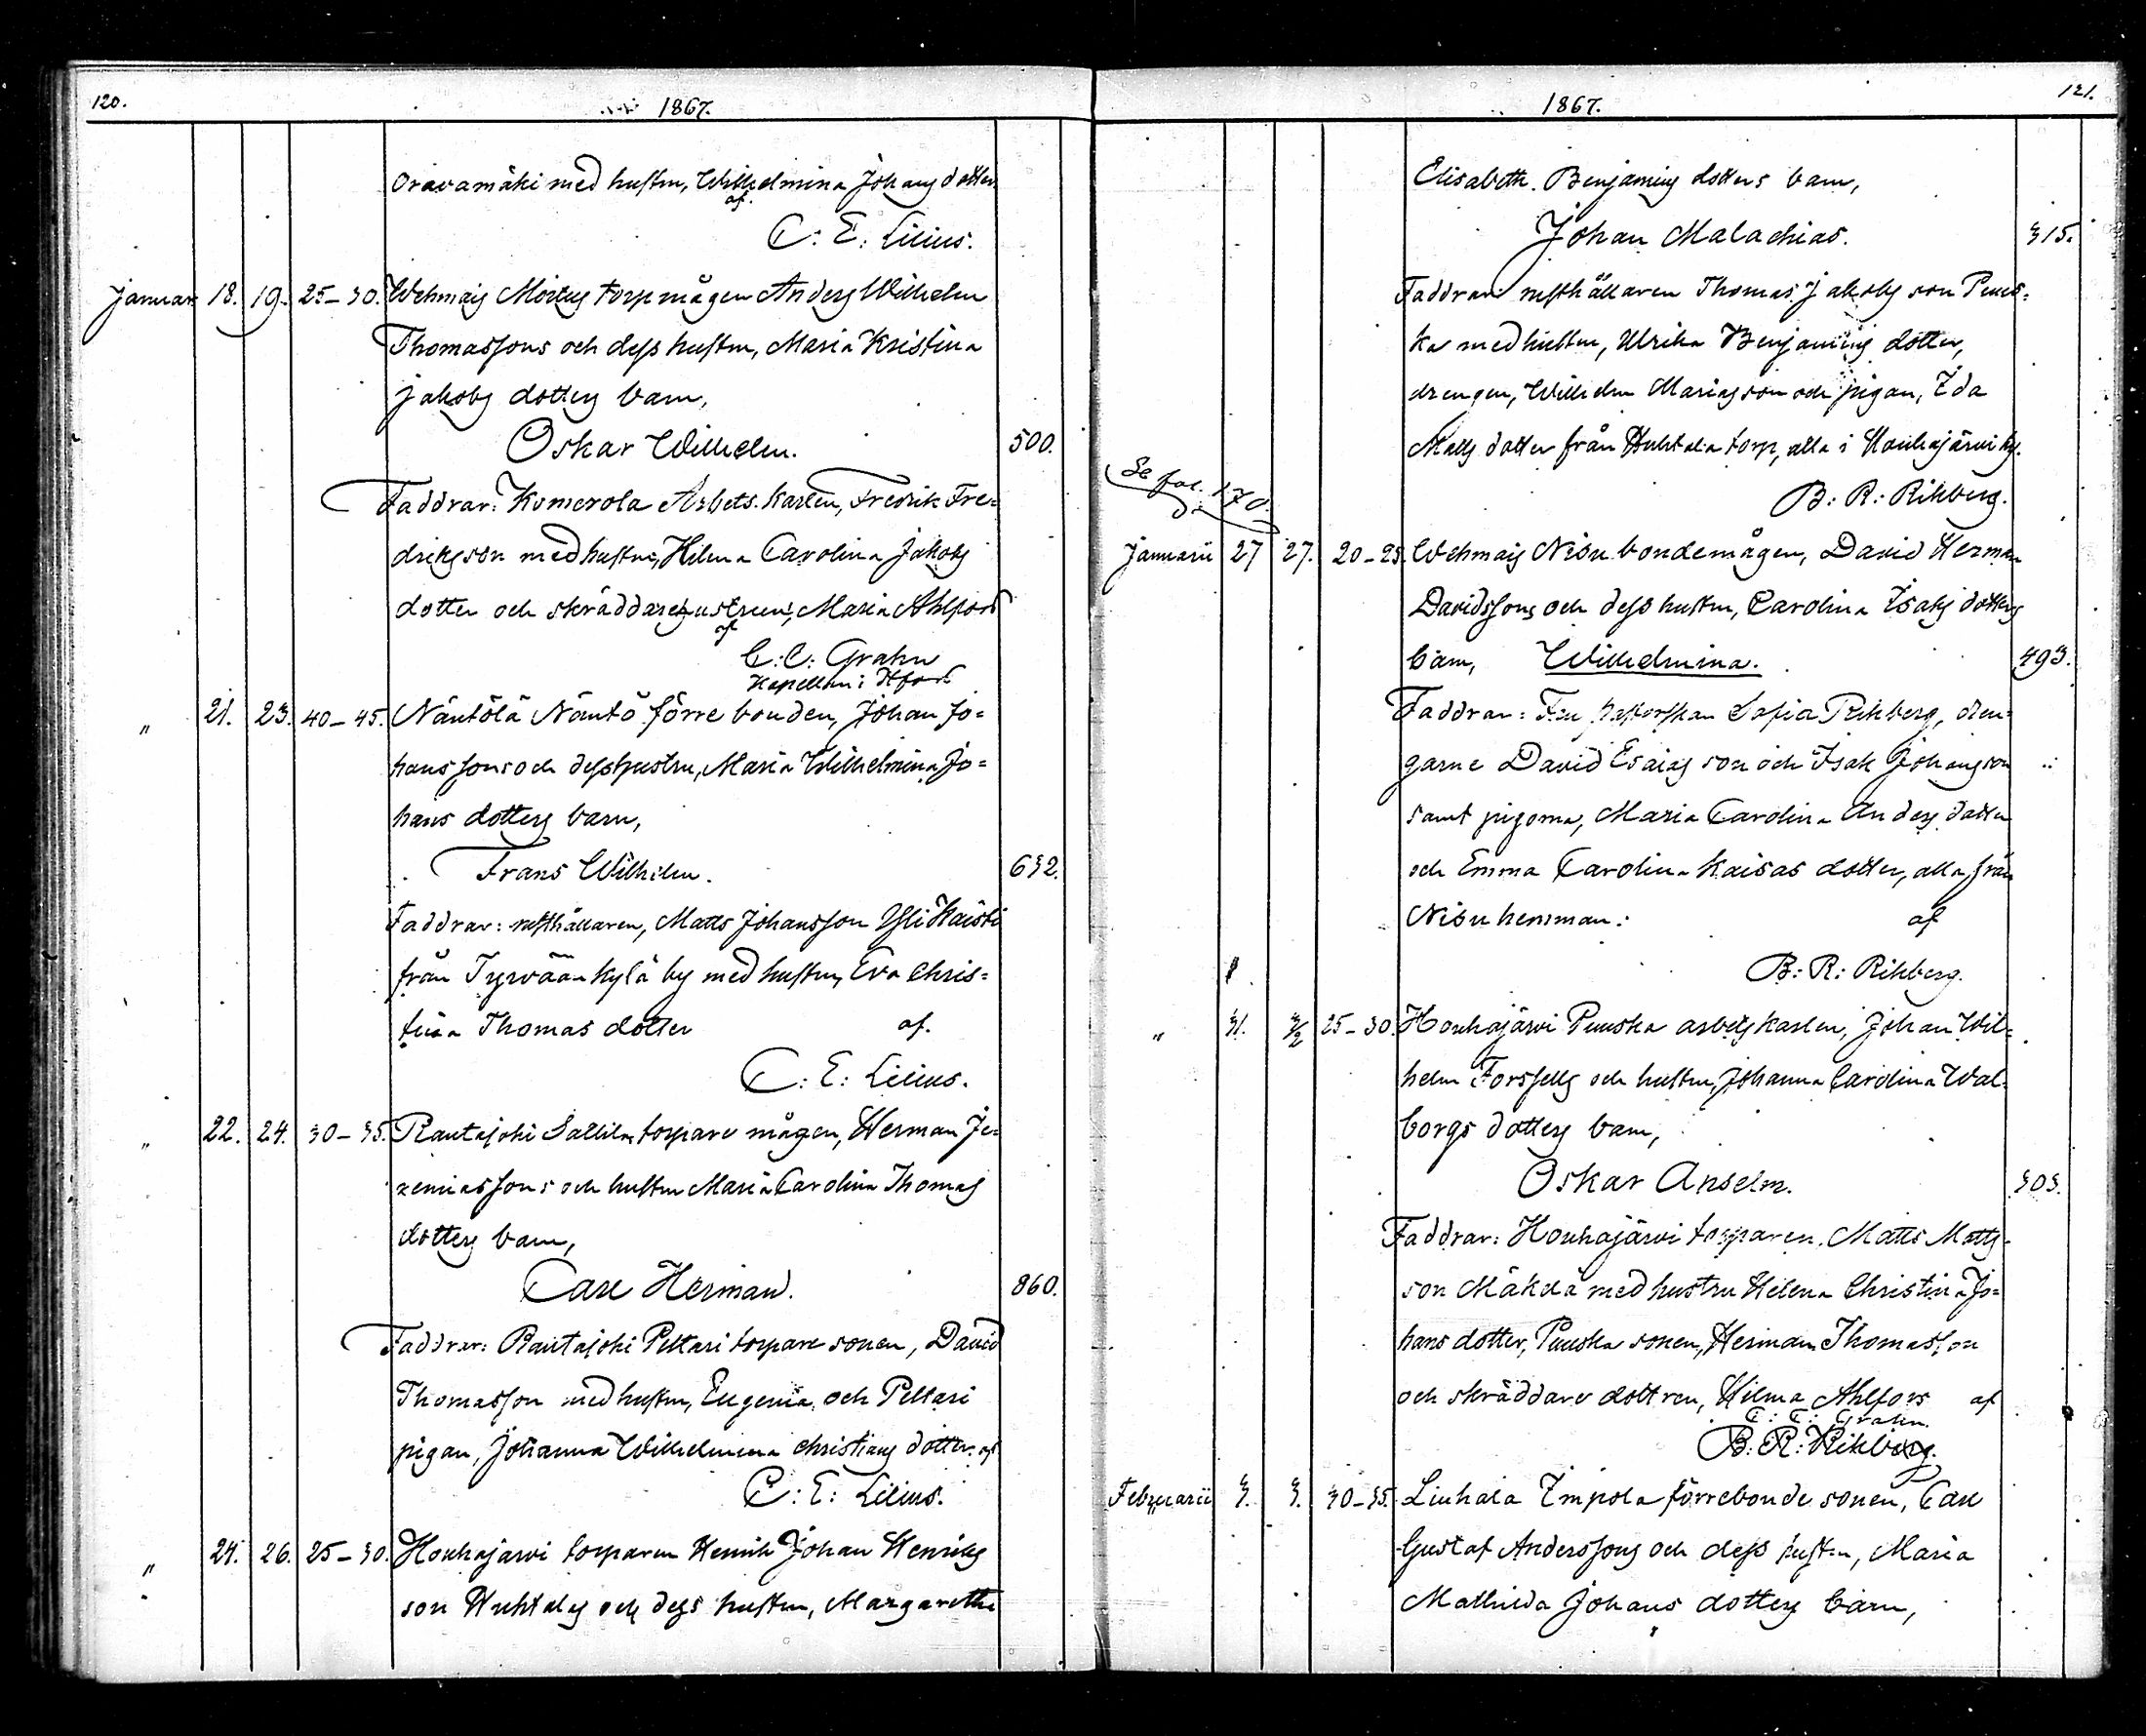 120.
1867.
Oravamäki med hustru, Wilhelmina Johans dotter
af.
C: E: Lilius.
Januari 18. 19. 25-30. Wehmais Mörtus torpmågen Anders Wilhelm
Thomassons och dess hustru, Maria Kristina
Jakobs dotters barn,
Oskar Wilhelm. 500.
Faddrar: Komerola Arbets karlen, Fredrik Fre=
driksson med hustru, Hilma Carolina Jakobs
dotter och skräddarehustrun, Maria Ahlfors
af
C. C: Grahn
Kapellan i Hfors
" 21. 23. 40-45. Näntölä Näntö förre bonden, Johan Jo=
hanssons och dess hustru, Maria Wilhelmina Jo=
hans dotters barn,
Frans Wilhelm. 632.
Faddrar: rusthållaren, Matts Johansson Yli Kaisti
från Tyrvään kylä by med hustru, Eva Chris=
tina Thomas dotter af.
C: E: Lilius.
" 22. 24. 30-35. Rautajoki Sallila torpare mågen, Herman Je=
remiassons och hustru Maria Carolina Thomas
dotters barn,
Carl Herman. 860.
Faddrar: Rautajoki Peltari torpare sonen, David
Thomasson med hustru, Eugenia, och Peltari
pigan, Johanna Wilhelmina Christians dotter. af
C: E: Lilius.
" 24. 26. 25-30. Houhajarwi torparen Henrik Johan Henriks
son Huhtalas och dess hustru, Margaretha
1867.
121.
Elisabeth Benjamins dotters barn,
Johan Malachias. 315.
Faddrar: rusthållaren Thomas Jakobs son Puus=
ka med hustru, Ulrika Benjamins dotter,
drengen, Wilhelm Mariasson och pigan, Ida
Matts dotter från Huhtala torp, alla i Houhajärwi by.
B: R: Rikberg.
Se fol. 170.
Januarii 27 27. 20-25. Wehmais Nisu bondemågen, David Herman
Davidssons och dess hustru, Carolina Isaks dotters
barn, Wilhelmina. 493.
Faddrar: Fru Pastorskan Sofia Rikberg, dren=
garne David Esaias son och Isak Johansson
samt pigorna, Maria Carolina Anders dotter
och Emma Carolina Kaisas dotter, alla från
Nisu hemman: af
B: R: Rikberg.
" 31. 3/2 25-30. Houhajärvi Puuska arbetskarlen, Johan Wil=
helm Forsfells och hustru, Johanna Carolina Wal=
borgs dotters barn,
Oskar Anselm. 303.
Faddrar: Houhajärvi torparen, Matts Matts
son Mäkelä med hustru Helena Christina Jo=
hans dotter, Puuska sonen, Herman Thomasson
och skräddare dottren, Hilma Ahlfors af
C: C: Grahn.
B: R: Rikberg.
Februarii 3. 3. 30-35. Liuhala Impola förrebonde sonen, Carl
Gustaf Anderssons och dess hustru, Maria
Mathilda Johans dotters barn,